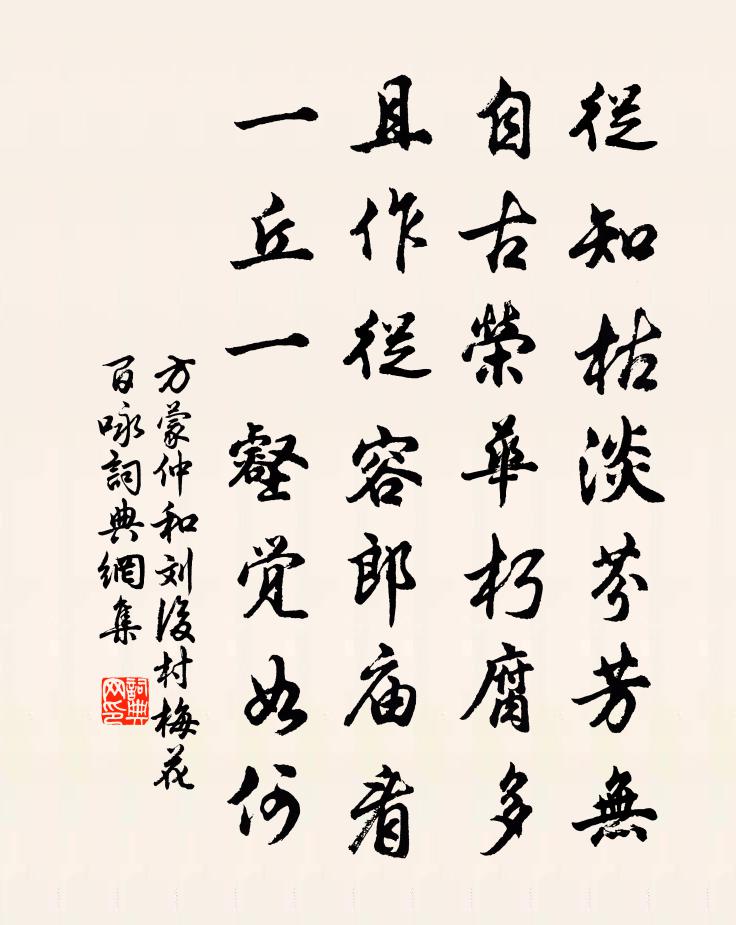 從知枯淡芬芳無
自古榮華朽腐多
且作從容郎庙看
一丘一壑覚如何
方蒙仲和刘後村梅花
百咏詞典網集
詞典网印